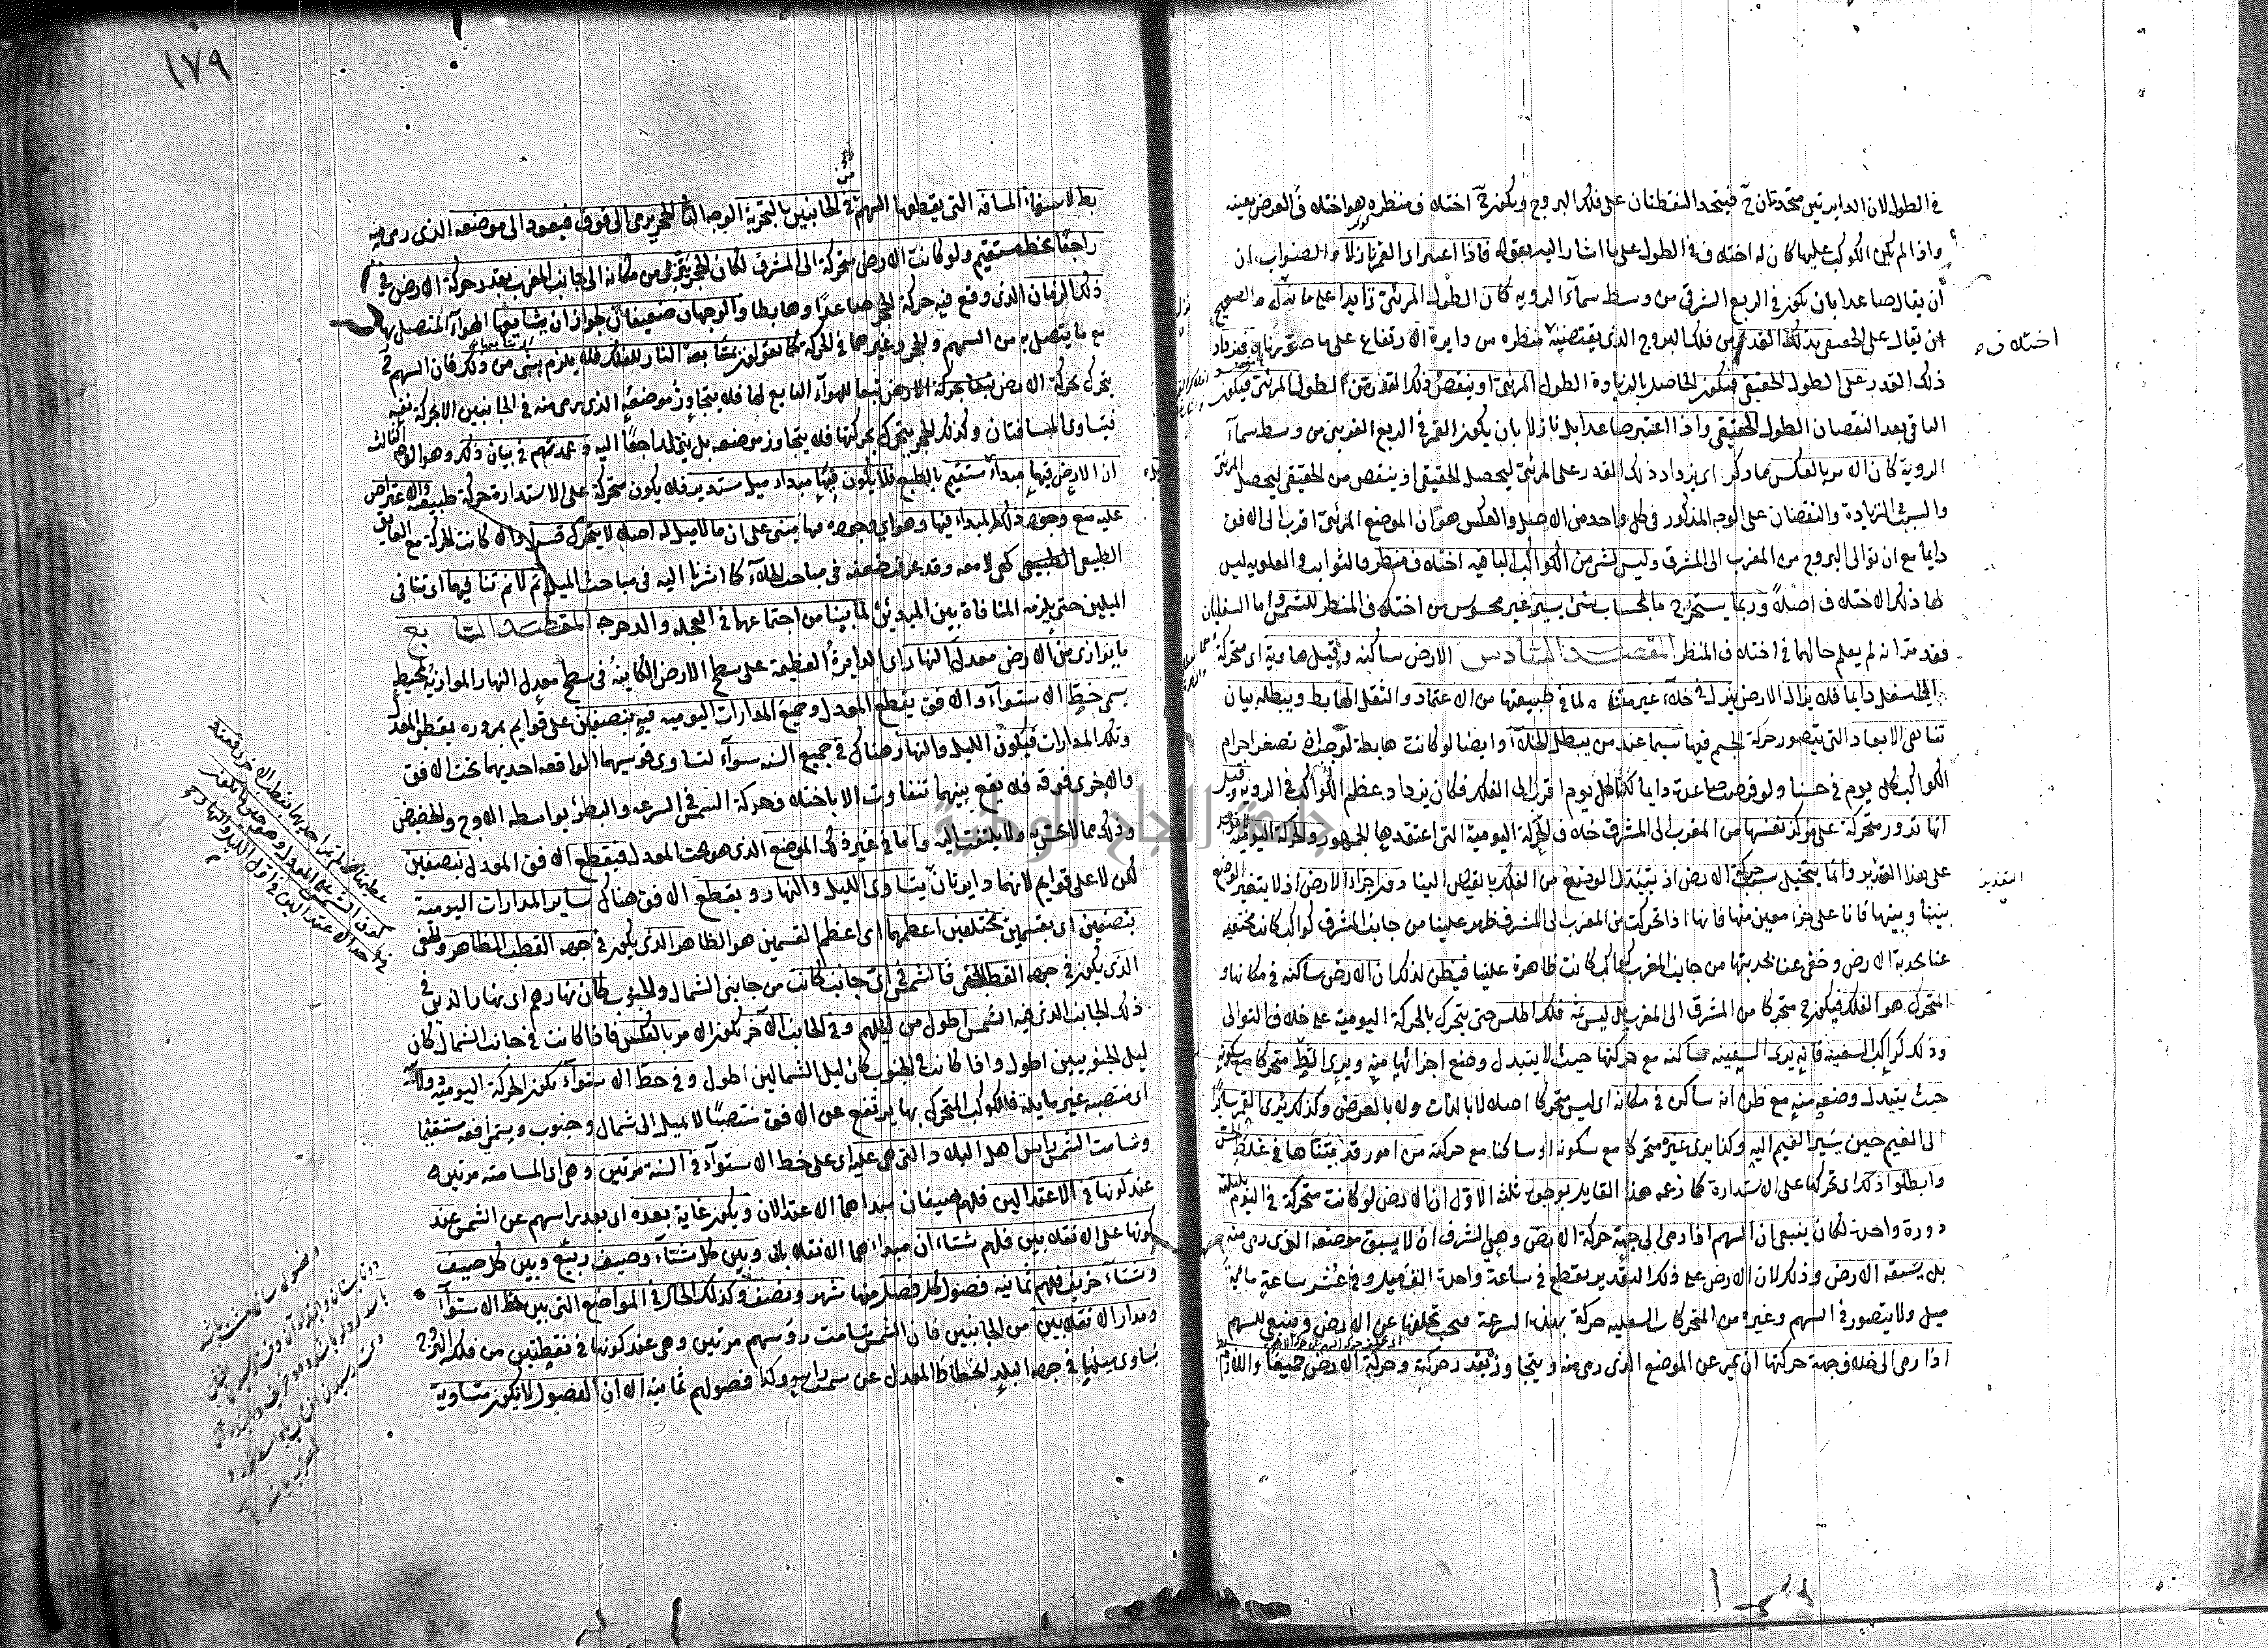 في الطول لان الدايرتين متحدتان ح فيتحد النقطتان على فلك البروج ويكون ح اختلاف منظره هو اختلاف في العرض بعينه
واذا لم يكن الكوكب عليها كان له اختلاف في الطول على ما اشار اليه بقوله فاذا اعتبر اى القمر نازلا والصواب ان
ان يقال صاعدا بان يكون في الربع الشرقي من وسط سماء الروية كان الطول المرئي زايدا على ما والصحيح
ان يقال على الحقيقي بذلك القدر من فلك البروج الذى يقتضيه منظره من دايرة الارتفاع على ما صورناه فيزداد
اختلاف
ذلك القدر على الطول الحقيقي فيكون الحاصل بالزيادة الطول المرئي او ينقص ذلك القدر من الطول المرئي فيكون
الباقي بعد النقصان الطول الحقيقي واذا اعتبر صاعدا بل نازلا بان يكون القمر في الربع الغربي من وسط سماء
الروية كان الامر بالعكس مما ذكر اى يزداد ذلك القدر على المرئي ليحصل الحقيقي او ينقص من الحقيقي ليحصل المرئي
والسر في الزيادة والنقصان على الوجه المذكور في كل واحد من الاصل والعكس هو ان الموضع المرئي اقرب الى الافق
دايما مع ان توالى البروج من المغرب الى المشرق وليس لشيء من الكواكب الباقية اختلاف منظر فالثوابت والعلوية ليس
لها ذلك الاختلاف اصلا وربما يستخرج بالحساب شيء يسير غير محسوس من اختلاف المنظر للشمس واما السفليان
فقد مر انه لم يعلم حالهما في اختلاف المنظر المقصد السادس الارض ساكنة وقيل هاوية اى متحركة
الى السفل دايما فلا يزال الارض ينزل في خلاء غير متناه لما في طبيعتها من الاعتماد والثقل الهابط ويبطله بيان
تناهى الابعاد التى يتصور حركة الجسم فيها سيما عند من يبطل الخلاء وايضا لو كانت هابطة لوجب ان تصغر اجرام
الكواكب كل يوم في حسنا ولو فرضت صاعدة دايما لكنا كل يوم اقرب الى الفلك فكان يزداد عظم الكواكب في الروية وقيل
انها تدور متحركة على مركز نفسها من المغرب الى المشرق خلاف الحركة اليومية التى اعتقدها الجمهور والحركة اليومية لا توجد
على هذا التقدير وانما يتخيل بسبب حركة الارض اذ يتبدل الوضع من الفلك بالقياس الينا دون اجزاء الارض اذ لا يتغير الوضع
التقدير
بيننا وبينها فانا على جزء معين منها فانها اذا تحركت من المغرب الى المشرق ظهر علينا من جانب المشرق كواكب كانت مختفية
عنا بحدبة الارض وخفى عنا بحدبتها من جانب المغرب كواكب كانت ظاهرة علينا فيظن لذلك ان الارض ساكنة في مكانها و
المتحرك هو الفلك فيكون ح متحركا من المشرق الى المغرب بل ليس ثمة فلك اطلس حتى يتحرك بالحركة اليومية على خلاف التوالى
وذلك كراكب السفينة فانه يرى السفينة ساكنة مع حركتها حيث لا يتبدل وضع اجزائها منه ويرى الشط متحركا مع سكونه
حيث يتبدل وضعه منه مع ظن انه ساكن في مكانه اى ليس متحركا اصلا لا بالذات ولا بالعرض وكذلك يرى القمر سايرا
الى الغيم حين يسير الغيم اليه وكذا يرى غيره متحركا مع سكونه او ساكنا مع حركته من امور قد بيناها في غلط الحس
وابطلوا ذلك اى تحركها على الاستدارة كما زعمه هذا القايل بوجوه ثلثة الاول ان الارض لو كانت متحركة في اليوم بليلته
دورة واحدة لكان ينبغى ان السهم اذا رمى الى جهة حركة الارض وهى المشرق ان لا يسبق موضعه الذى رمى منه
بل يسبقه الارض وذلك لان الارض على ذلك التقدير يقطع في ساعة واحدة الف ميل وفي عشر ساعة مائة
ميل ولا يتصور في السهم وغيره من المتحركات السفلية حركة بهذه السرعة فيجب تخلفها عن الارض وينبغي للسهم
اذا رمى الى خلاف جهة حركتها ان يمر عن الموضع الذى رمى منه ويتجاوزه بقدر حركته وحركة الارض جميعا واللازم
١٧٩
بط لاستواء المسافة التى يقطعها السهم في الجانبين بالتجربة الوجه الثاني الحجر يرمى الى فوق فيعود الى موضعه الذى رمى منه
راجعا بخط مستقيم ولو كانت الارض متحركة الى المشرق لكان الحجر ينزل من مكانه الى جانب المغرب بقدر حركة الارض في
ذلك الزمان الذى وقع فيه حركة الحجر صاعدا وهابطا والوجهان ضعيفان لجواز ان يشايعها الهواء المتصل بها
مع ما يتصل به من السهم والحجر وغيرهما في الحركة كما يقولون بمشايعة النار للفلك فلا يلزم شيء من ذلك فان السهم ح
يتحرك بحركة الارض تبعا للهواء التابع لها فلا يتجاوز موضعه الذى رمى منه في الجانبين الا بحركة نفسه
فيتساوى المسافتان وكذلك الحجر يتحرك بحركتها فلا يتجاوز موضعه بل ينزل راجعا اليه وعمدتهم في بيان ذلك وهو الوجه الثالث
ان الارض فيها مبدأ مستقيم بالطبع فلا يكون فيها مبدأ ميل مستدير فلا يكون متحركة على الاستدارة حركة طبيعية والاعتراض
عليه مع وجود ذلك المبدأ فيها وهو اى وجوده فيها مبنى على ان ما لا ميل له اصلا لا يتحرك قسرا والا كانت الحركة مع العايق
الطبيعى كهى لا معه وقد عرفت ضعفه في مباحث الخلاء كما اشرنا اليه في مباحث الميل ثم لا نم تنافيهما اى تنافى
الميلين حتى يلزمه المنافاة بين المبدئين لما بينا من اجتماعهما في العجلة والدحرجة المقصد السابع
ما يوازى من الارض معدل النهار اى الدايرة العظيمة على سطح الارض الكاينة في سطح معدل النهار الموازية لمحيطه
يسمى خط الاستواء والافق يقطع المعدل وجميع المدارات اليومية فيه بنصفين على قوايم بمروره بقطبى المعدل
وتلك المدارات فيكون الليل والنهار هناك في جميع السنة سواء لتساوى قوسيهما الواقعة احديهما تحت الافق
والاخرى فوقه فلا يقع بينهما تفاوت الا باختلاف حركة الشمس في السرعة والبطؤ بواسطة الاوج والحضيض
وذلك مما لا يحس به ولا يلتفت اليه واما في غير ذلك الموضع الذى هو تحت المعدل فيقطع الافق المعدل بنصفين
لكن لا على قوايم لانهما دايرتان يتساوى الليل والنهار ويقطع الافق هناك ساير المدارات اليومية
بنصفين اى بقسمين مختلفين اعظمهما اى اعظم القسمين هو الظاهر الذى يكون في جهة القطب الظاهر والخفى
الذى يكون في جهة القطب الخفى فالشمس في اى جانب كانت من جانبى الشمال والجنوب كان نهارهم اى نهار الذين في
ذلك الجانب الذى فيه الشمس اطول من ليلهم وفي الجانب الآخر يكون الامر بالعكس فاذا كانت في جانب الشمال كان
ليل الجنوبيين اطول واذا كانت في الجنوب كان ليل الشماليين اطول وفي خط الاستواء يكون الحركة اليومية دولابية
اى منتصبة غير مايلة فالكوكب المتحرك بها يرتفع عن الافق منتصبا لا يميل الى شمال وجنوب ويسمى افقه مستقيما
وتسامت الشمس راس اهل البلاد التى هى عليه اى على خط الاستواء في السنة مرتين وهى اى المسامتة مرتين
عند كونها في الاعتدالين فلهم صيفان مبداهما الاعتدالان ويكون غاية بعده اى بعد راسهم عن الشمس عند
كونها على الانقلابين فلهم شتاءان مبداهما الانقلابان وبين كل شتاء وصيف ربيع وبين كل صيف
وشتاء خريف فلهم ثمانية فصول كل فصل منها شهر ونصف وكذلك الحال في المواضع التى بين خط الاستواء
ومدار الانقلابين من الجانبين فان الشمس تسامت رؤسهم مرتين وهى عند كونها في نقطتين من فلك البروج
يساوى ميلها في جهة البلد انحطاط المعدل عن سمت راسه وكذا فصولهم ثمانية الا ان الفصول لا يكون متساوية
جامعة النجاح الوطنية